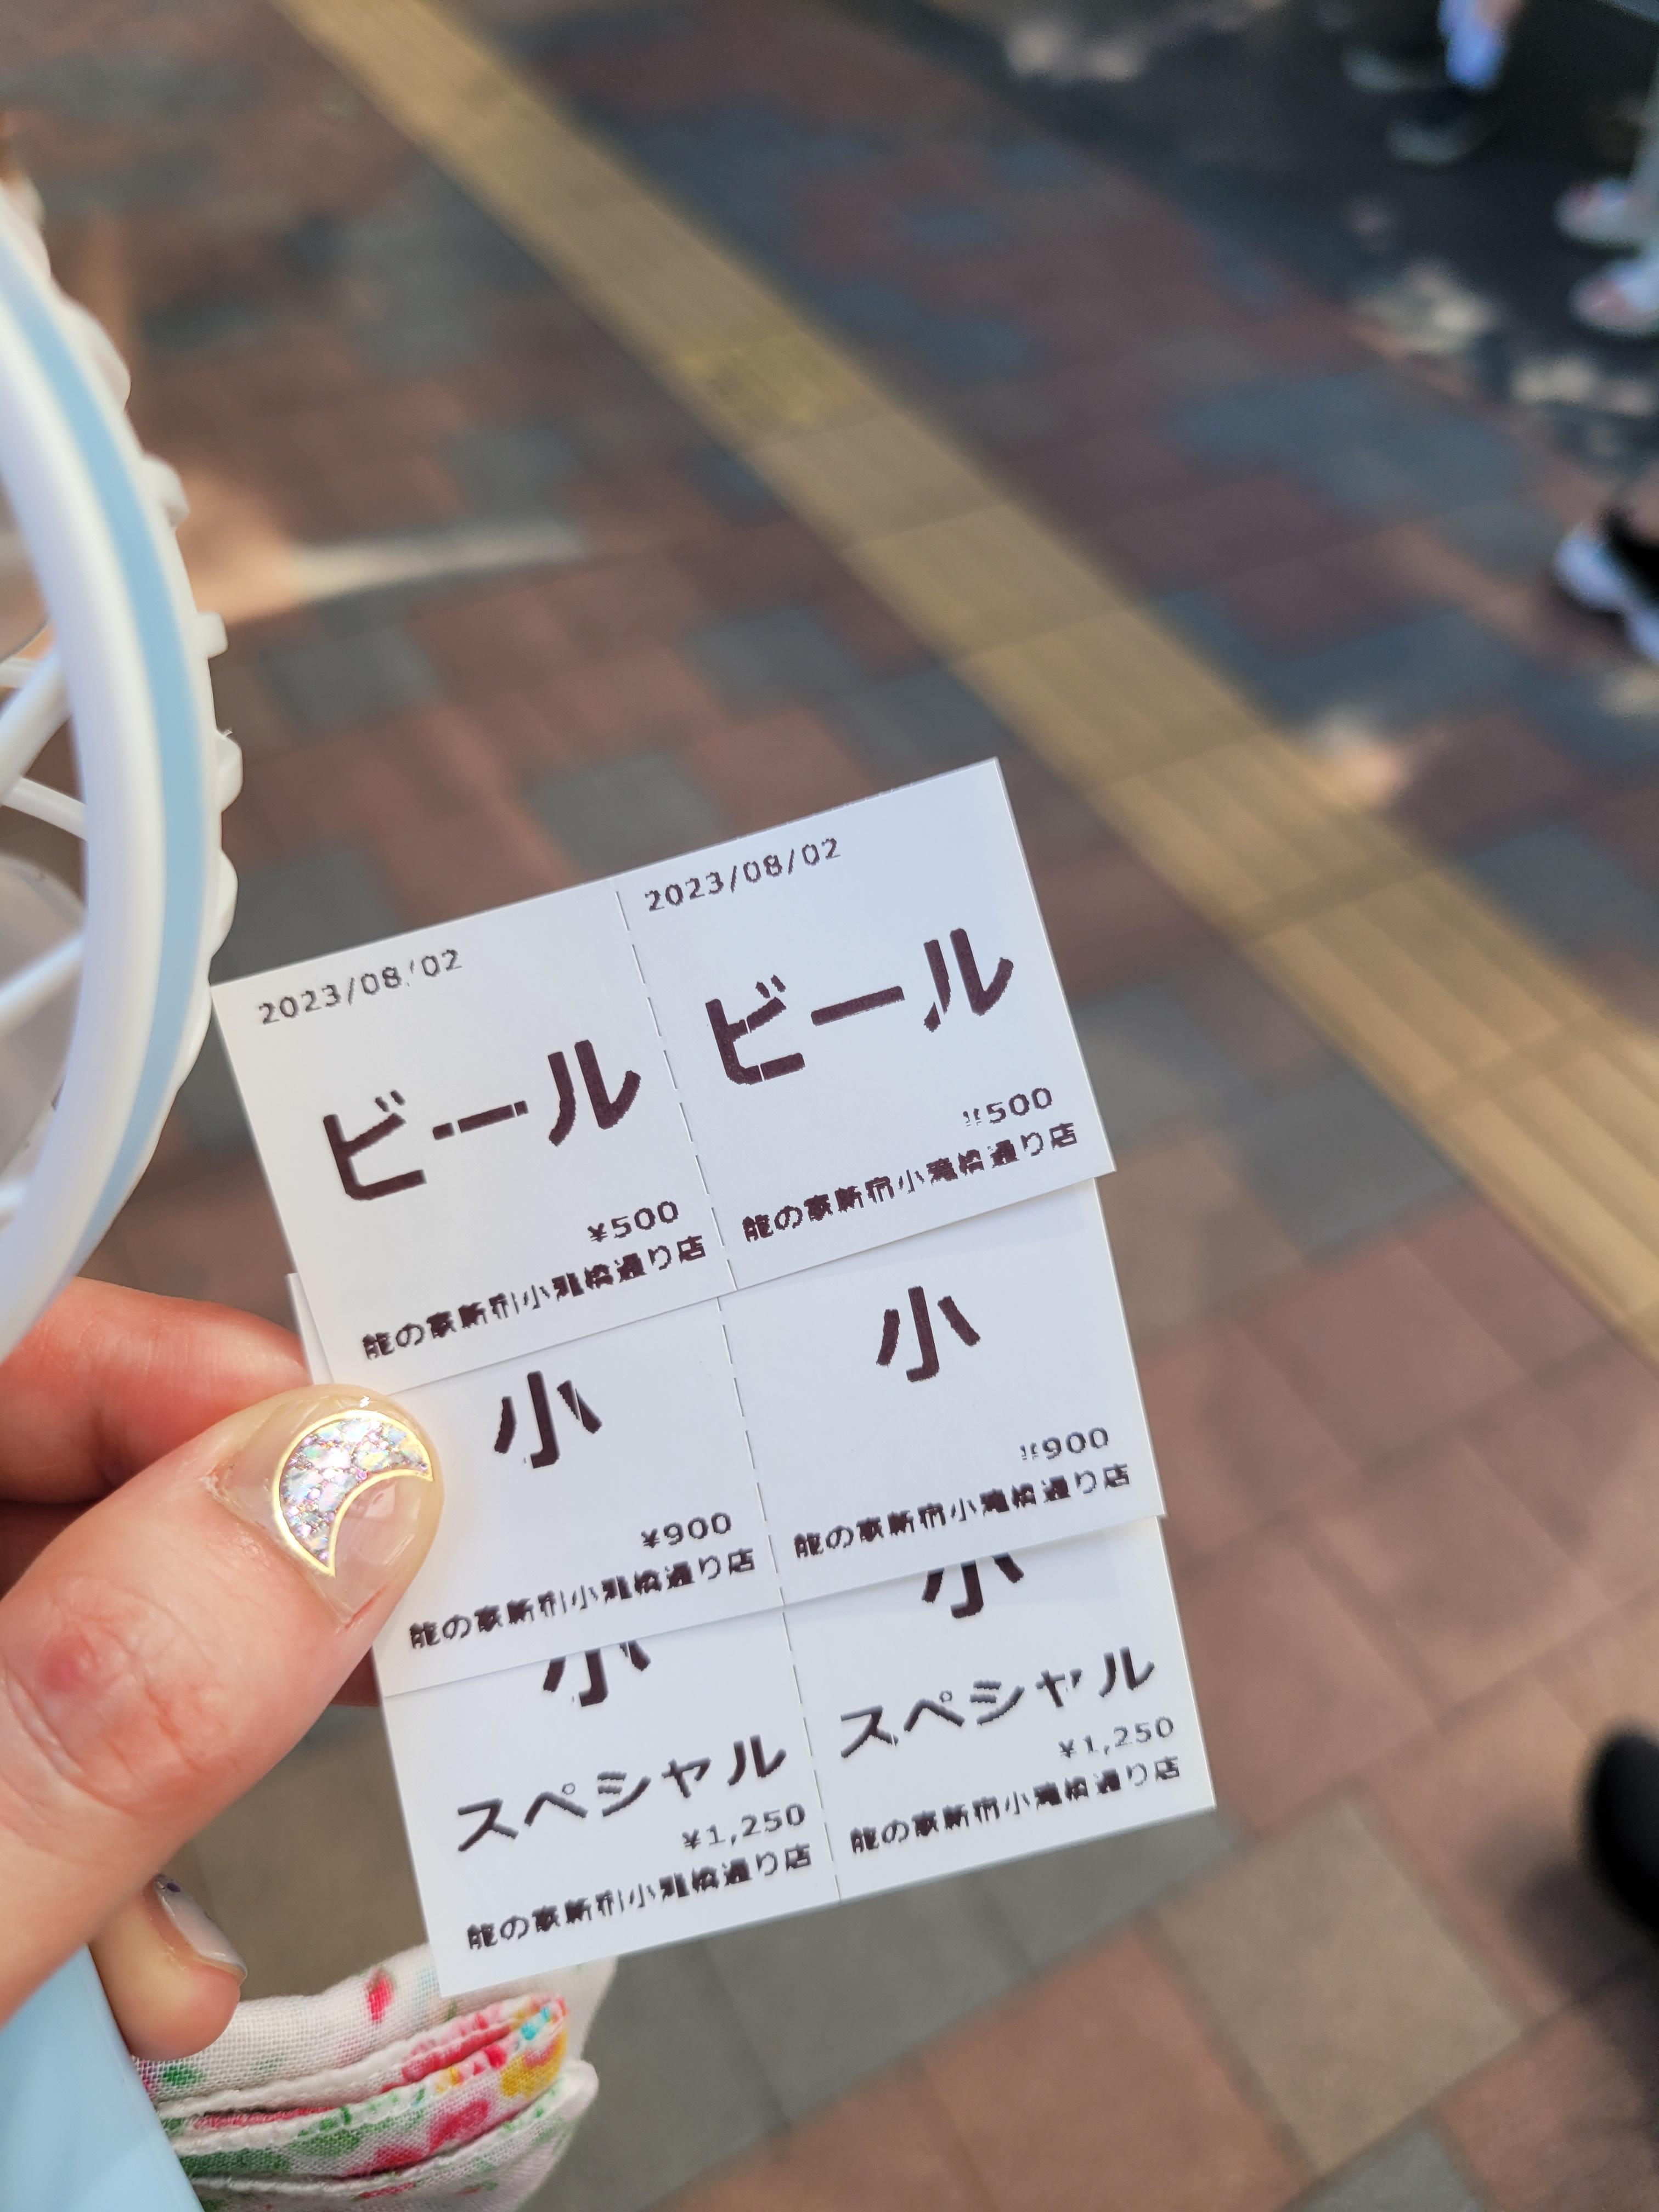 2023/08/02
ビール
¥500
龍の家新宿小滝橋通り店
2023/08/02
ビール
¥500
龍の家新宿小滝橋通り店
小
¥900
龍の家新宿小滝橋通り店
小
¥900
龍の家新宿小滝橋通り店
小
スペシャル
¥1,250
龍の家新宿小滝橋通り店
小
スペシャル
¥1,250
龍の家新宿小滝橋通り店